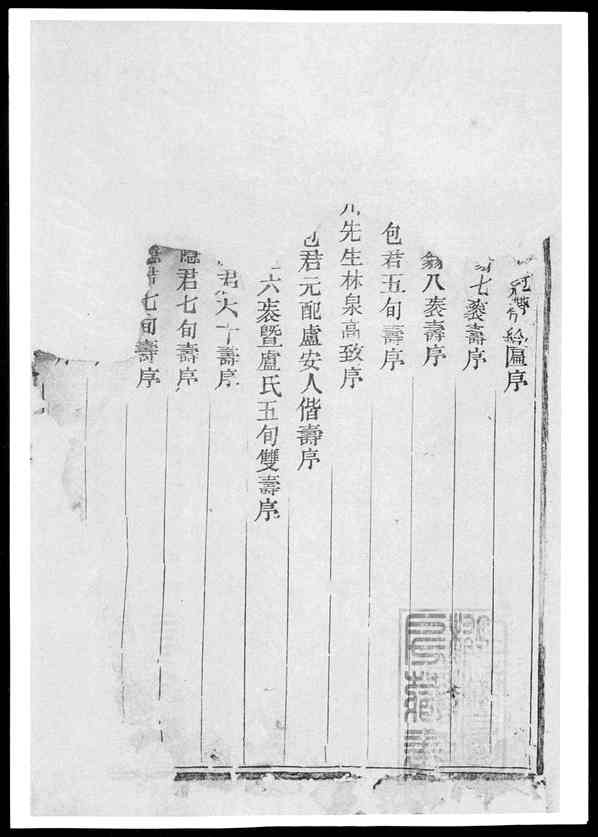 匾序
七袠壽序
八袠壽序
包君五旬壽序
先生林泉高致序
君元配盧安人偕壽序
六袠暨盧氏五旬雙壽序
君六十壽序
君七旬壽序
七旬壽序